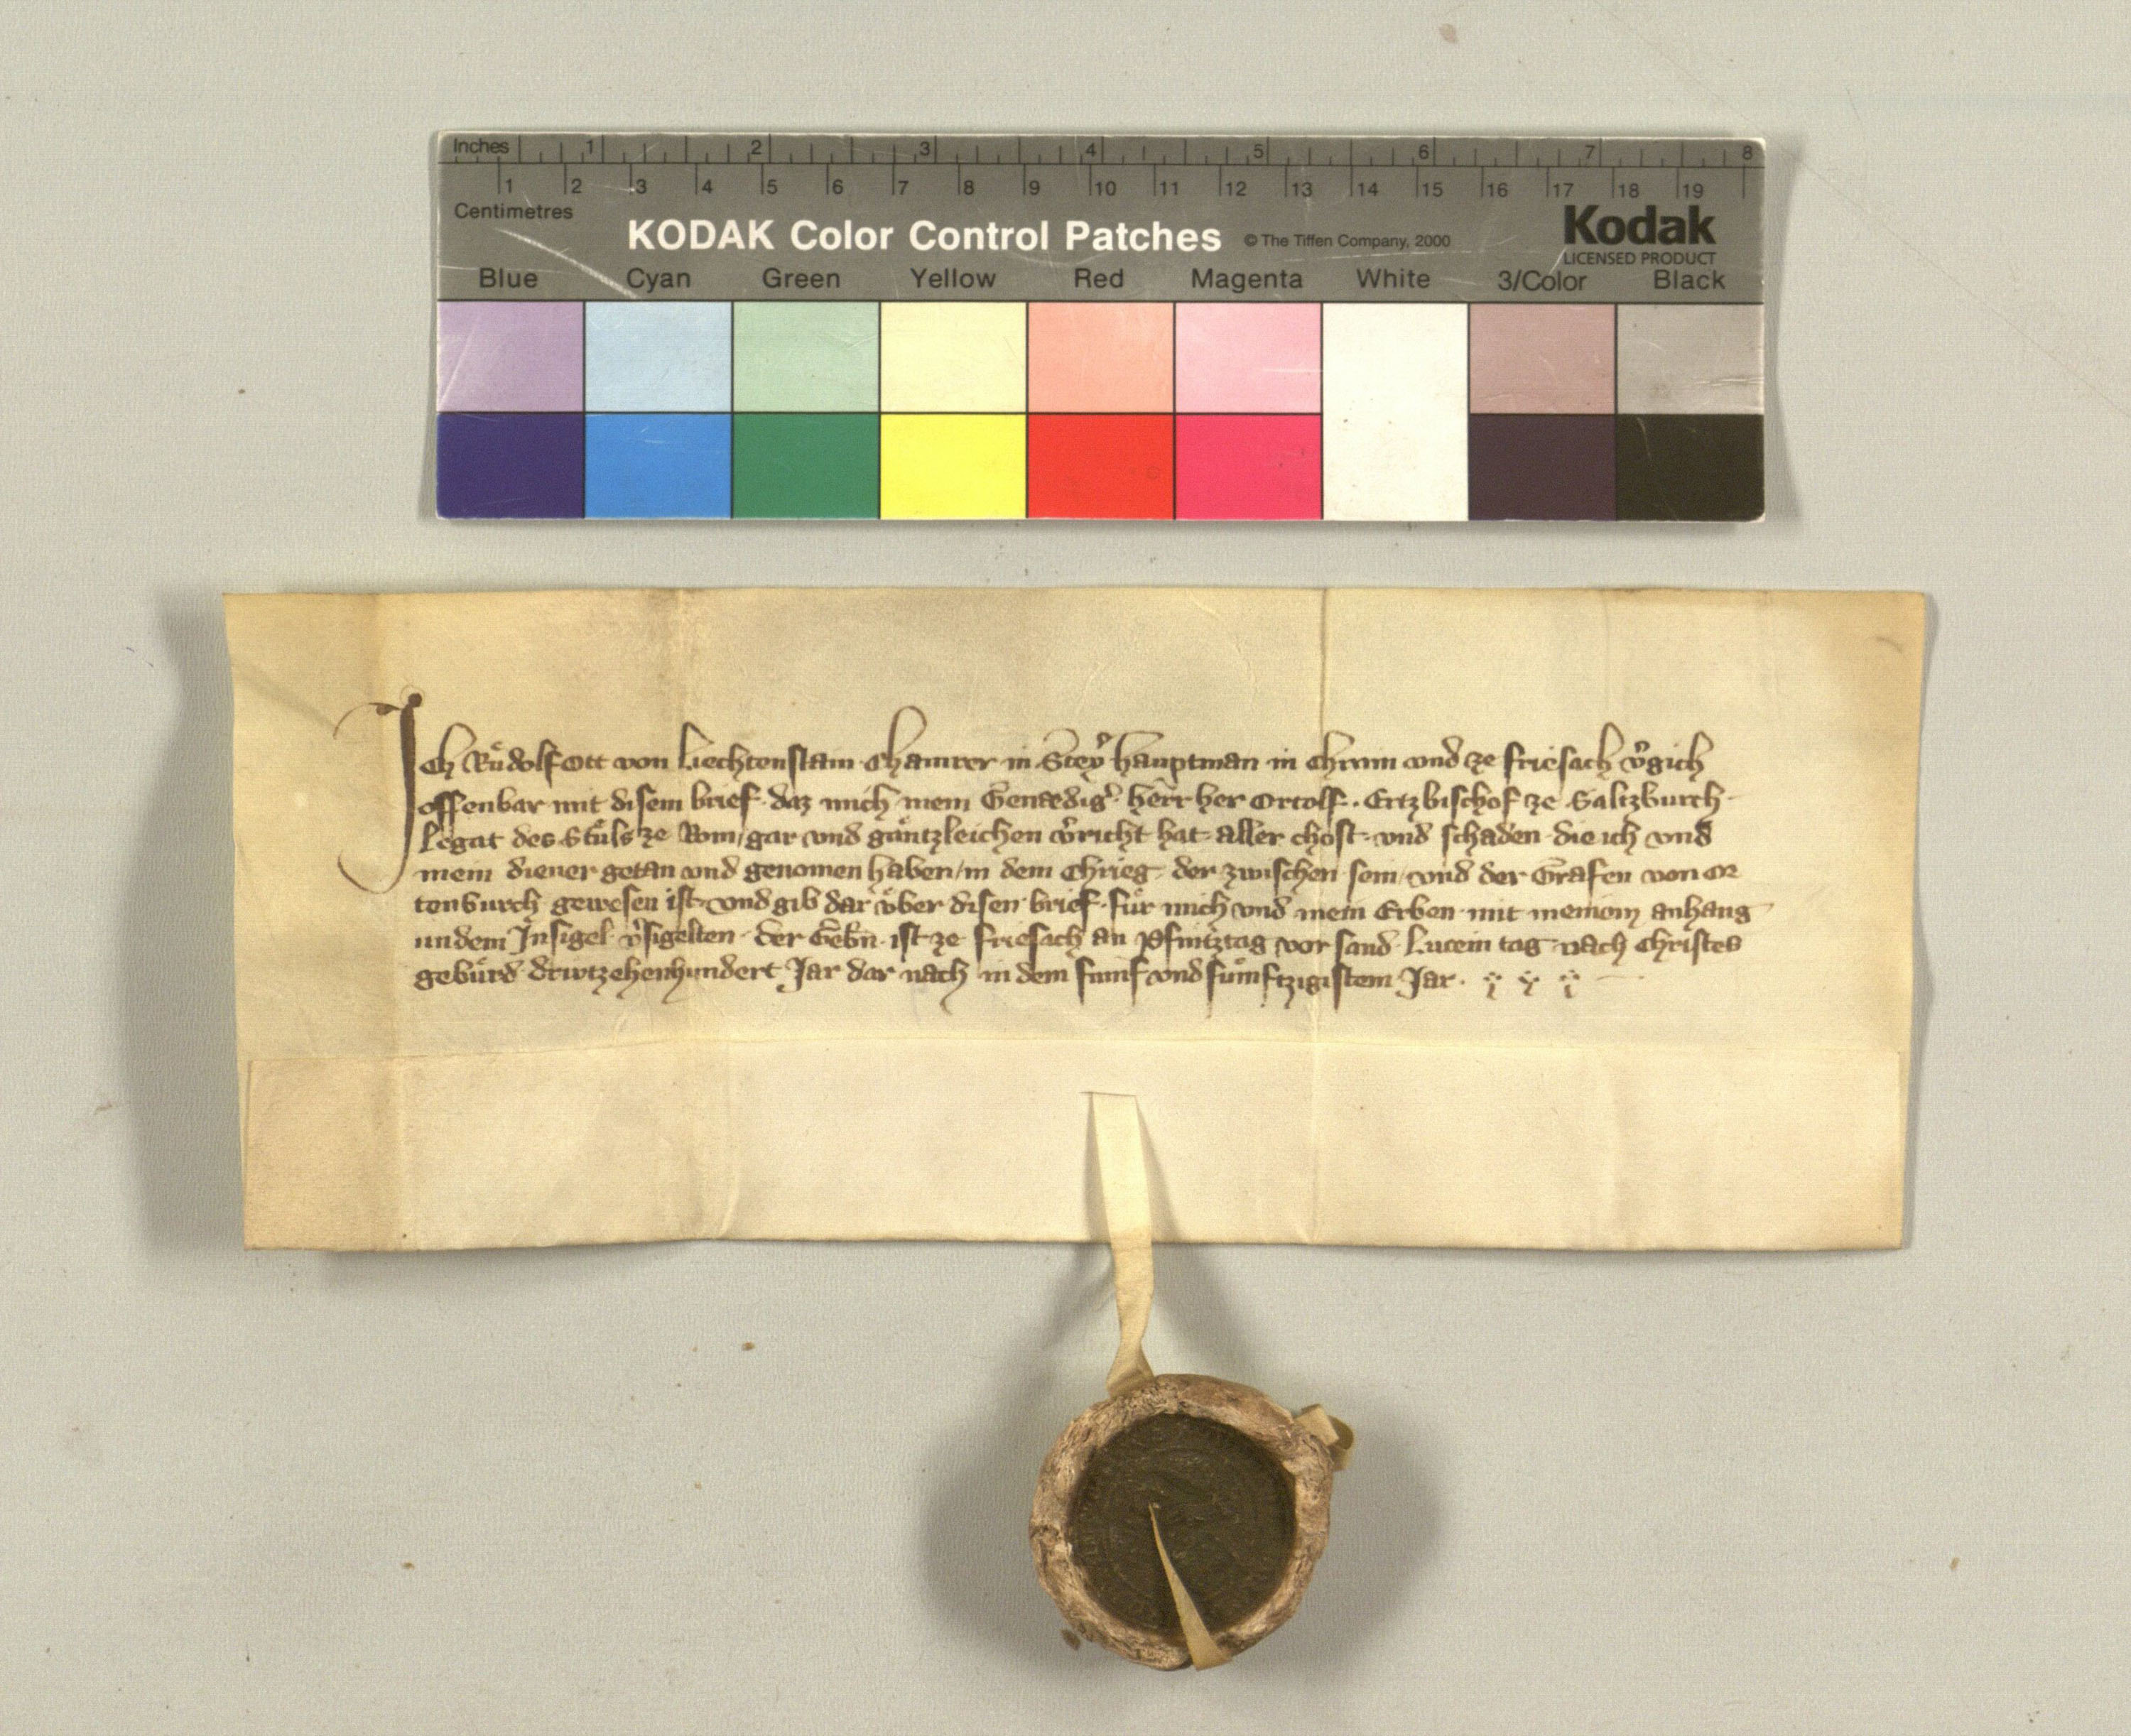 Inches 1 2 3 4 5 6 7 8
1 2 3 4 5 6 7 8 9 10 11 12 13 14 15 16 17 18 19
Centimetres
KODAK Color Control Patches © The Tiffen Company, 2000 Kodak
LICENSED PRODUCT
Blue Cyan Green Yellow Red Magenta White 3/Color Black
Ich Růdolf Ott von Liechtenstain Chamrer in Steyr hauptman in Chrnin vnd ze Friesach v̓gich
offenbar mit disem brief · daz mich mein Genædig̓ · herr her Ortolf · Ertzbischof ze Saltzburch ·
Legat des Stůls ze Rom / gar vnd gåntzleichen v̓richt hat · aller chost · vnd schaden · die ich vnd
mein diener getan vnd genomen haben / in dem chrieg · der zwischen sein / vnd der Grafen von Or
tenburch gewesen ist · vnd gib dar vͤber disen brief · fuͤr mich vnd mein Erben · mit meinem anhang
undem Insigel v̓sigelten · Der Gebn̄ · ist ze Friesach an Pfintztag vor sand Lucein tag · nach Christes
gebuͤrd driwtzehenhundert Jar dar nach in dem fumf vnd fuͤmftzigistem Jar ·